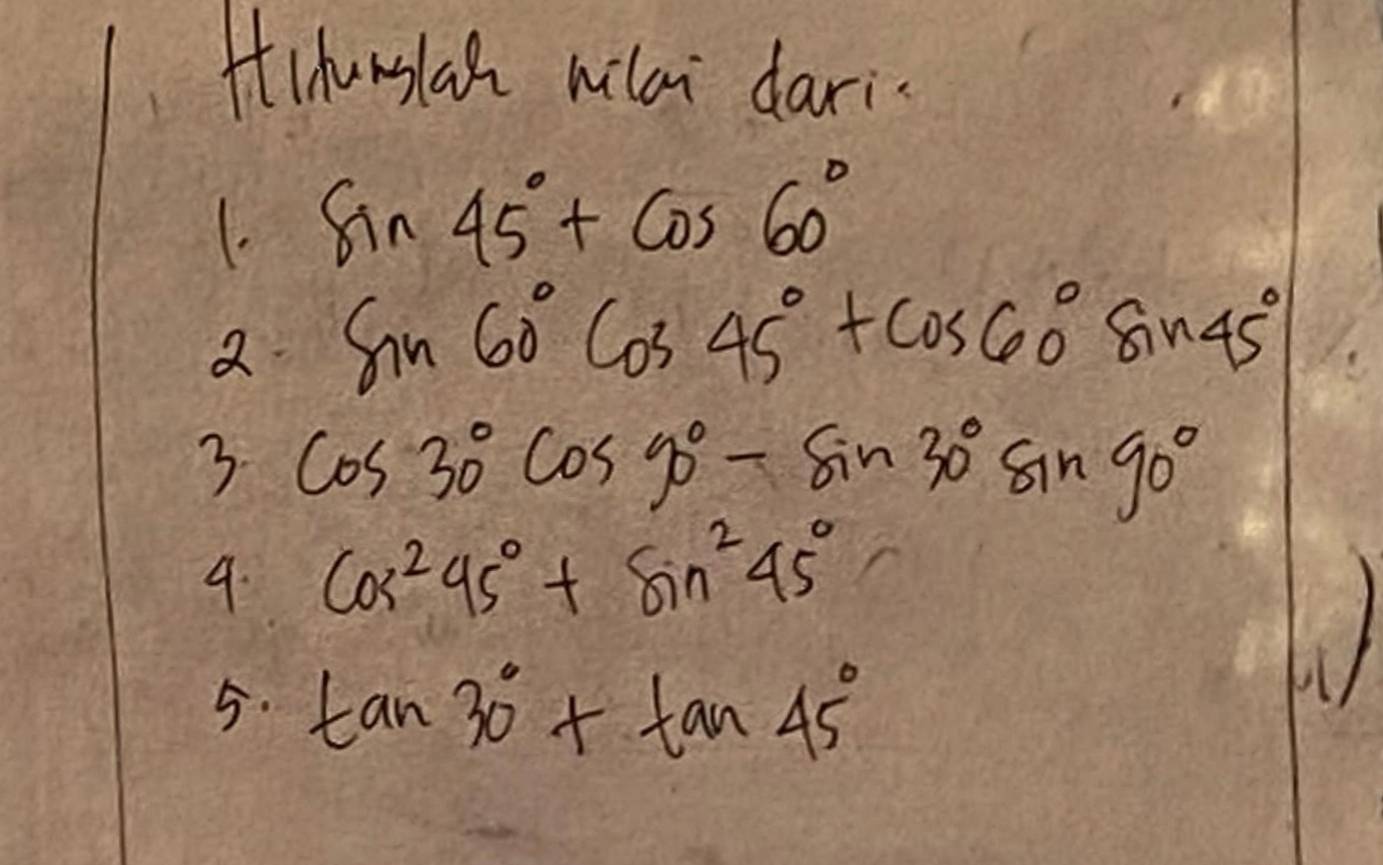 Hitunglah nilai dari.
1. Sin 45° + Cos 60°
2. Sin 60° Cos 45° + Cos 60° Sin 45°
3. Cos 30° Cos 90° - Sin 30° Sin 90°
4. Cos² 45° + Sin² 45°
5. tan 30° + tan 45°